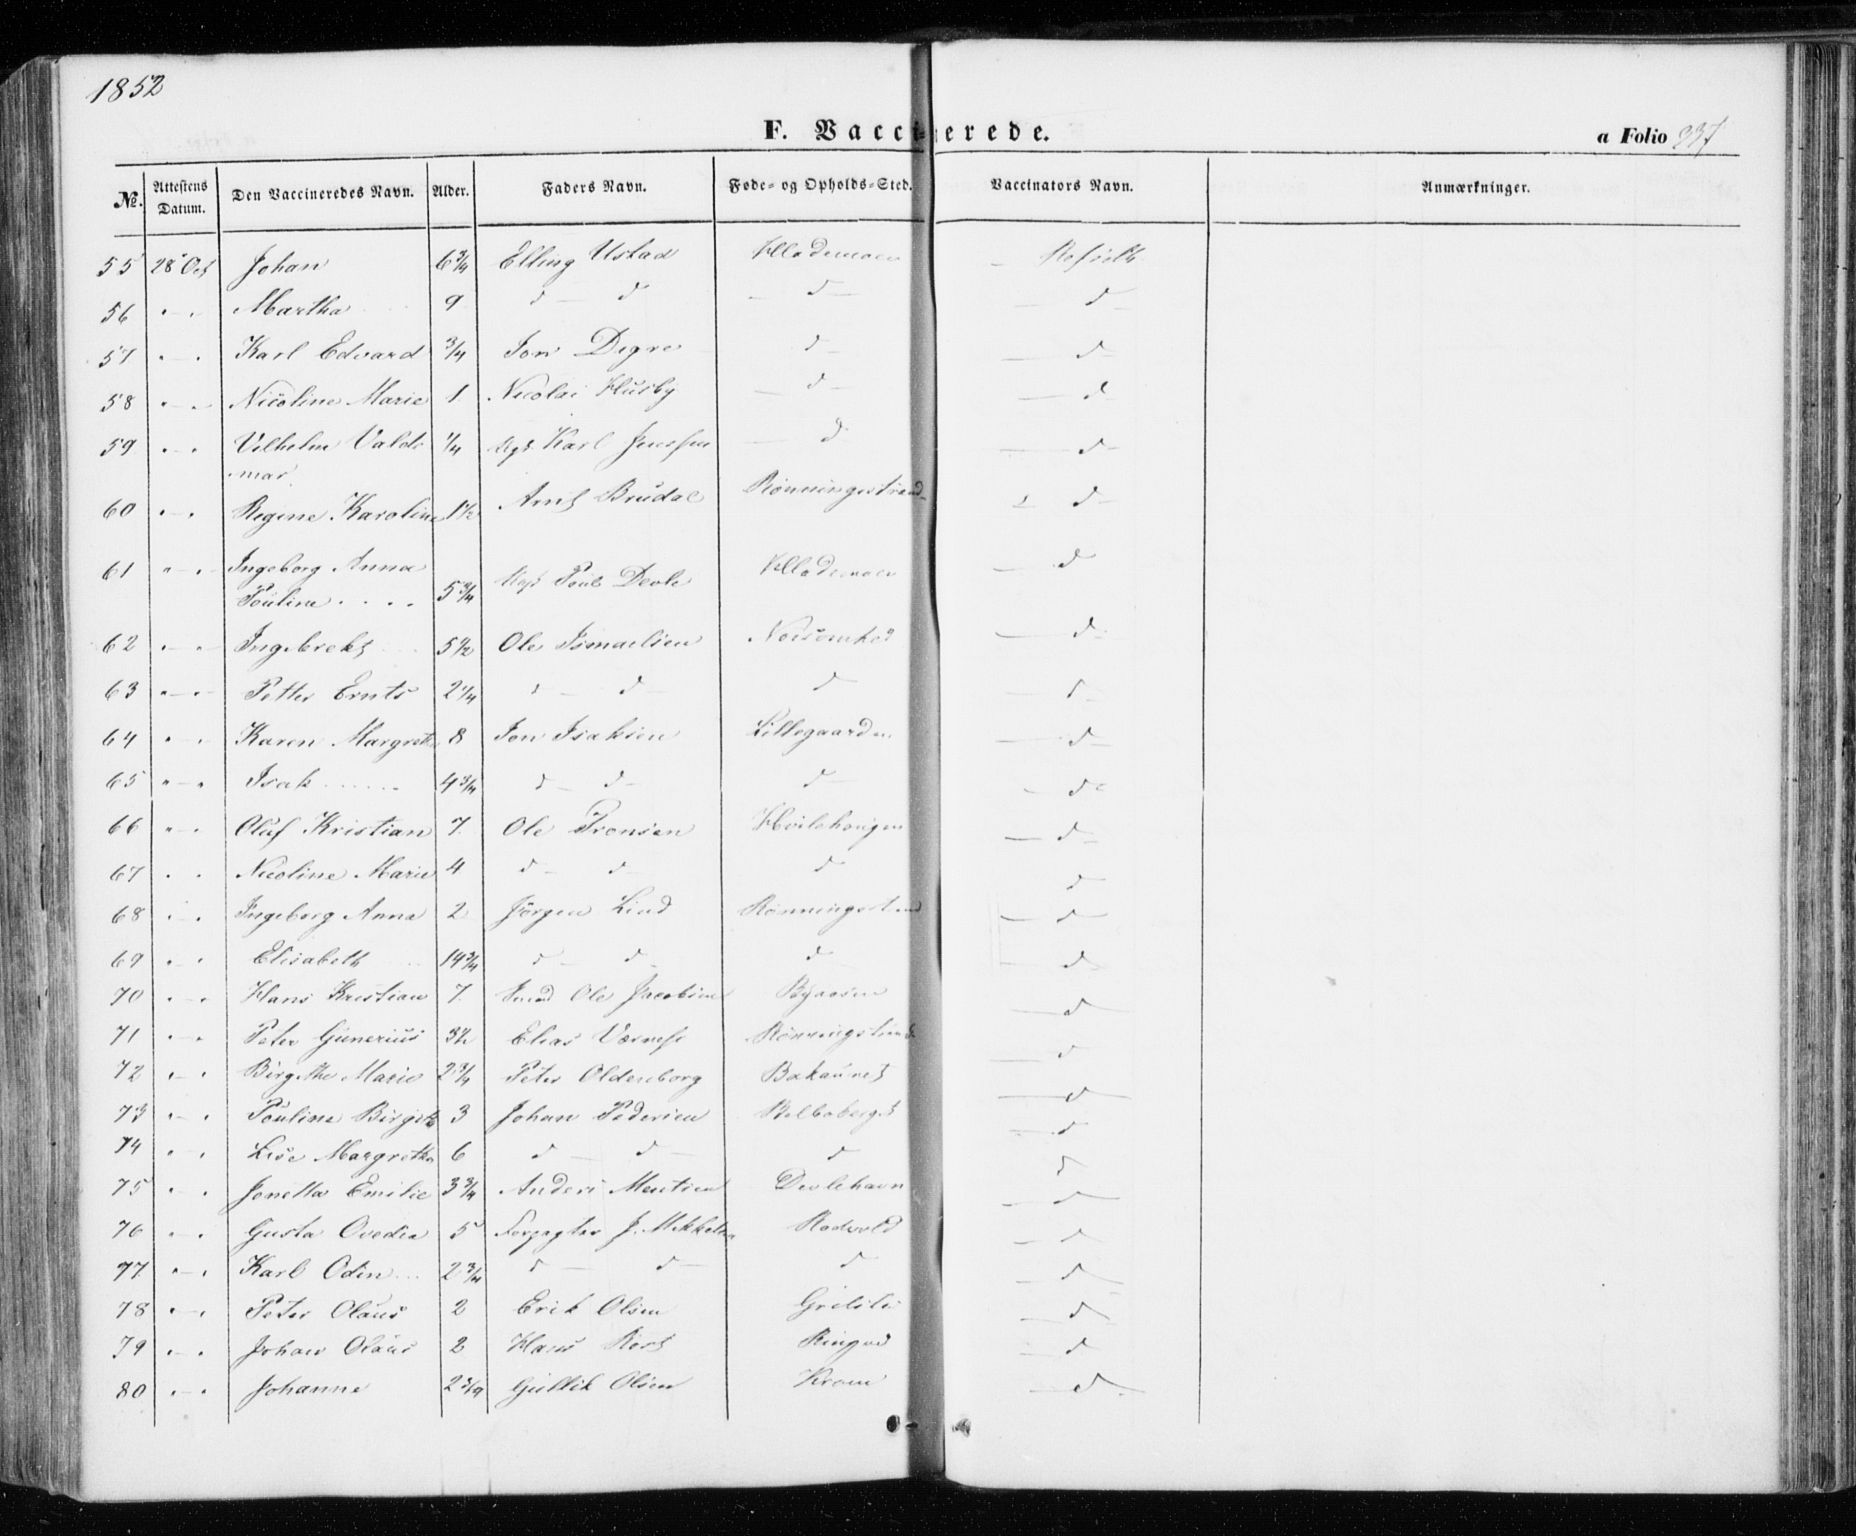 1852
F. Vaccinerede.
a Folio 237
No. Attestens Datum. Den Vaccineredes Navn. Alder. Faders Navn. Føde- og Opholds-Sted. Vaccinators Navn. Anmærkninger.
55 28 Oct Johan 6 3/4 Elling Ustad Hlademoen
56 " — " Martha 9 d — d — d — — d —
57 " — " Karl Edvard 3/4 Jon Digre d — — d —
58 " — " Nicoline Marie 1 Nicolai Husby — d — — d
59 " — " Vilhelm Valde- 1/4 Karl Jenssen — d — d —
mar
60 " — " Regine Karoline 1 1/2 Arnt Brudal Rønningstrand d —
61 " — " Ingeborg Anna Poul Devle Hlademoen — d
Pouline . . . . 5 3/4
62 " — " Ingebrekt 5 1/2 Ole Ismaelsen — d
63 " — " Petter Ernts 2 1/4 d — d d — d —
64 " — " Karen Margrethe 8 Jon Isaksen Lillegaarden — d —
65 " — " Isak . . . . . . 4 3/4 d — d — d — — d
66 " — " Oluf Kristian 7. Ole Tronsen — d —
67 " " Nicoline Marie 4 d — d — d d
68 " — " Ingeborg Anna 2 Jørgen Lind Rønningstrand — d —
69 " — " Elisabeth 14 3/4 d — d — d — — d
70 " — " Hans Kristian 7. Ole Jacobsen Byaasen — d
71 " — " Peter Gunerius 3 1/2 Elias Værnes Rønningstrand — d
72 " — " Birgithe Marie 2 3/4 Peter Oldenborg Bakaunet — d —
73 " — " Pouline Birgith 3 Johan Pedersen — d
74 " — " Lise Margrethe 6 d — d — d d
75 " — " Jonetta Emilie 3 3/4 Anders Mentsen Devlehavn — d —
76 " — " Gusta Ovedia 5 Forpagter J. Mikkelsen Rotvold — d
77. " — " Karl Odin . . . 2 3/4 d — d — d — d —
78 " — " Peter Olaus 2 Erik Olsen — d
79 " — " Johan Olaus 2 Hans Ringve — d
80 " — " Johanne 2 3/4 Gullik Olsen — d —